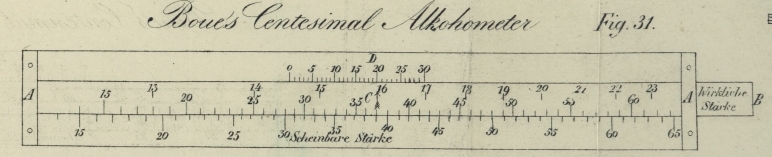 Boue's Centesimal Alkohometer Fig. 31.
D
0 5 10 15 20 25 30
13 14 15 16 17 18 19 20 21 22 23
A 15 20 25 30 35 C 40 45 50 55 60 A Wirkliche Stärke B
15 20 25 30 Scheinbare Stärke 35 40 45 50 55 60 65